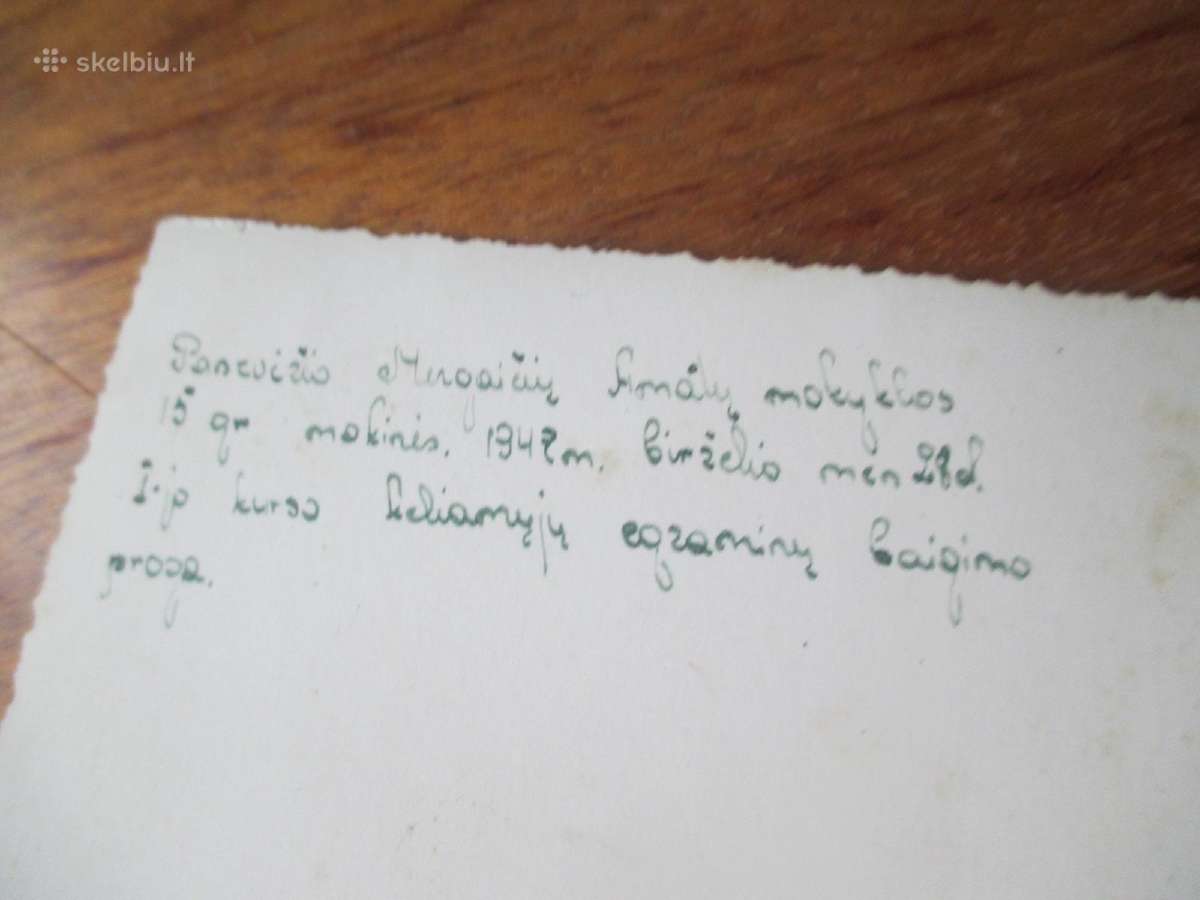 skelbiu.lt
Panevėžio Mergaičių Amatų mokyklos
15 gr mokinės. 1947m. birželio mėn 28d.
I-jo kurso keliamųjų egzaminų baigimo
proga.